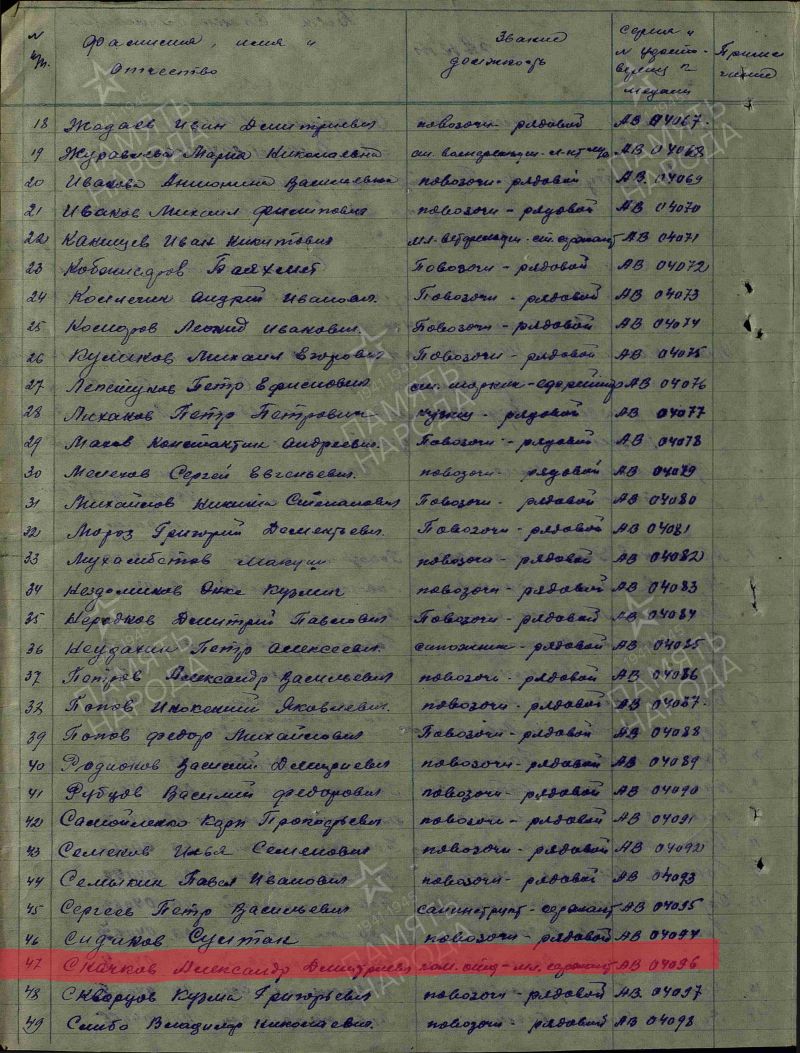 N п/п. Фамилия, имя и отчество Звание должность Серия и N удосто-верения медали Приме чание
18 Жадаев Иван Дмитриевич повозочн - рядовой АВ 04067
19 Журавлева Мария Николаевна АВ 04068
20 Иванова Антонина Васильевна повозочн - рядовой АВ 04069
21 Иванов Михаил Филипович повозочн - рядовой АВ 04070
22 Канищев Иван Никитович АВ 04071
23 Повозочн - рядовой АВ 04072
24 Андрей Иванович. Повозочн - рядовой АВ 04073
25 Леонид Иванович. Повозочн - рядовой АВ 04074
26 Куликов Михаил Егорович Повозочн - рядовой АВ 04075
27 Петр Ефимович ефрейтор АВ 04076
28 Петр Петрович кузнец - рядовой АВ 04077
29 Махов Константин Андреевич Повозочн - рядовой АВ 04078
30 Мелехов Сергей Евгеньевич. повозочн - рядовой АВ 04079
31 Михайлов Никита Степанович Повозочн - рядовой АВ 04080
32 Мороз Григорий Дементьевич. Повозочн - рядовой АВ 04081
33 повозочн - рядовой АВ 04082
34 Кузмич повозочн - рядовой АВ 04083
35 Дмитрий Павлович Повозочн - рядовой АВ 04084
36 Неудахин Петр Алексеевич. сапожник - рядовой АВ 04085
37 Петров Александр Васильевич повозочн - рядовой АВ 04086
38 Попов Инокений Яковлевич. повозочн - рядовой АВ 04087.
39 Попов Федор Михайлович Повозочн - рядовой АВ 04088
40 Родионов Василий Дмитриевич повозочн - рядовой АВ 04089
41 Рубцов Василий Федорович повозочн - рядовой АВ 04090
42 Самойленко Карп Прокофьевич повозочн - рядовой АВ 04091
43 Семенов Илья Семенович повозочн - рядовой АВ 04092
44 Семыкин Павел Иванович повозочн - рядовой АВ 04093
45 Сергеев Петр Васильевич санинструкт - сержант АВ 04095
46 Сидиков Султан повозочн - рядовой АВ 04094
47 Скачков Александр Дмитриевич ком. отд - мл. сержант АВ 04096
48 Скварцов Кузма Григорьевич повозочн - рядовой АВ 04097
49 Владимир Николаевич. повозочн - рядовой АВ 04098
ПАМЯТЬ НАРОДА